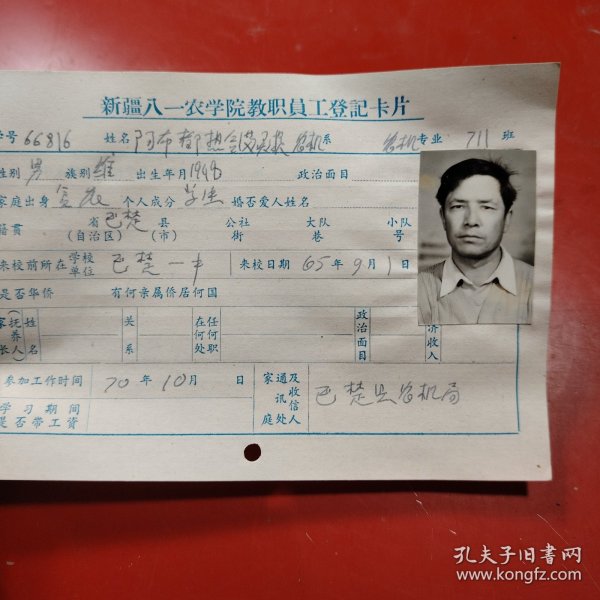 新疆八一农学院教职員工登記卡片
学号 66816 姓名 阿布都热 农机系 农机专业 711班
性别 男 族别 维 出生年月 1948 政治面目
家庭出身 贫农 个人成分 学生 婚否爱人姓名
籍贯 省(自治区) 巴楚县(市) 公社街 大队巷 小队号
来校前所在学校单位 巴楚一中 来校日期 65年9月1日
是否华侨 有何亲属侨居何国
家长(抚养人)姓名 关系 在何处任何职 政治面目 济收入
参加工作时间 70年10月 日 家庭通讯处及收信人 巴楚县农机局
学习期间是否带工资
孔夫子旧书网
www.kongfz.com